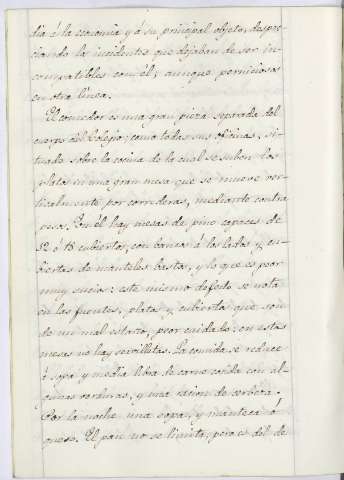 dia á la economia y á su principal objeto, despre-
ciando los incidentes que dejaban de ser in-
compatibles con él; aunque perniciosos
en otra linea.
El comedor es una gran pieza separada del
cuerpo del Colegio; como todas sus oficinas, si-
tuado sobre la cocina de la cual se suben los
platos en una gran mesa que se mueve ver-
ticalmente por correderas, mediante contra
peso. En él hay mesas de pino capaces de
12 ó 18 cubiertos, con bancos á los lados y cu-
biertas de manteles bastos, y lo que es peor
muy sucios: este mismo defecto se nota
en las fuentes, platos y cubiertos que son
de un mal estaño, peor cuidado: en estas
mesas no hay servilletas. La comida se reduce
á sopa y media libra de carne cocida con al-
gunas verduras, y una racion de cerbeza;
Por la noche una sopa, y manteca ó
queso. El pan no se limita, pero es del de